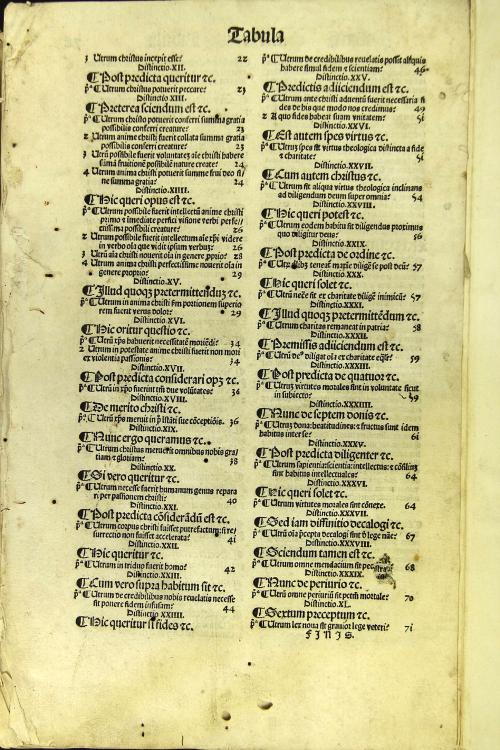 Tabula
3 Utrum christus incepit esse? 22
Distinctio.XII.
¶Post predicta queritur ⁊c.
p̄ª ¶Utrum christus potuerit peccare? 23
Distinctio XIII.
¶Preterea sciendum est ⁊c.
p̄ª ¶Utrum christo potuerit conferri summa gratia
possibilis conferri creature? 23
2 Utrum anime christi fuerit collata summa gratia
possibilis conferri creature? 23
3 Utrū possibile fuerit voluntatez aīe christi habere
sūmā fruitionē possibilē nature create? 24
4 Utrum anima christi potuerit summe frui deo si
ne summa gratia? 24
Distinctio.XIIII.
¶Hic queri opus est ⁊c.
p̄ª ¶Utrum possibile fuerit intellectū anime christi
primo ⁊ imediate perfici visione verbi perfe/
ctissima possibili creature? 26
2 Utrum possibile fuerit intellectum aīe xp̄i videre
in verbo oīa que videt ipsum verbuz? 26
3 Utrū aīa christi nouerit oīa in genere ꝓprio? 28
4 Utrum anima christi perfectissime nouerit oīa in
genere proprio? 29
Distinctio.XV.
¶Illud quoqz pretermittenduz ⁊c.
p̄ª ¶Utrum in anima christi fm portionem superio
rem fuerit verus dolor? 29
Distinctio.XVI.
¶Hic oritur questio ⁊c.
p̄ª ¶Utrū xp̄s habuerit necessitatē moriēdi? 34
2 Utrum in potestate anime christi fuerit non mori
ex violentia passionis? 34
Distinctio.XVII.
¶Post predicta considerari opz ⁊c.
p̄ª ¶Utrū in xp̄o fuerint tm̄ due volūtates? 36
Distinctio.XVIII.
¶De merito christi ⁊c.
p̄ª ¶Utrū xp̄s meruit in p̄ īstāti sue cōceptiōis. 36
Distinctio.XIX.
¶Nunc ergo queramus ⁊c.
p̄ª ¶Utrum christus meruerit omnibus nobis gra/
tiam ⁊ gloriam? 38
Distinctio.XX.
¶Si vero queritur ⁊c.
p̄ª ¶Utrum necesse fuerit humanum genus repara
ri per passionem christi? 40
Distinctio.XXI.
¶Post predicta cōsiderādū est ⁊c.
p̄ª ¶Utrum corpus christi fuisset putrefactum: si re/
surrectio non fuisset accelerata? 41
Distinctio.XXII.
¶Hic queritur ⁊c.
p̄ª ¶Utrum in triduo fuerit homo? 42
Distinctio.XXIII.
¶Cum vero supra habitum sit ⁊c.
p̄ª ¶Utrum de credibilibus nobis reuelatis necesse
sit ponere fidem infusam? 44
Distinctio.XXIIII.
¶Hic queritur si fides ⁊c.
p̄ª ¶Utrum de credibilibus reuelatis possit aliquis
habere simul fidem ⁊ scientiam? 46
Distinctio.XXV.
¶Predictis adiiciendum est ⁊c.
p̄ª ¶Utrum ante christi aduentū fuerit necessaria fi
des de his que modo nos credimus? 49
2 A quo fides habeat suam vnitatem? 51
Distinctio.XXVI.
¶Est autem spes virtus ⁊c.
p̄ª ¶Utrū spes sit virtus theologica distincta a fide
⁊ charitate? 51
Distinctio.XXVII.
¶Cum autem christus ⁊c.
p̄ª ¶Utrum sit aliqua virtus theologica inclinans
ad diligendum deum super omnia? 54
Distinctio.XXVIII.
¶Hic queri potest ⁊c.
p̄ª ¶Utrum eodem habitu sit diligendus proximus
quo diligitur deus? 56
Distinctio.XXIX.
¶Post predicta de ordine ⁊c.
p̄ª ¶Utrz qlibz teneat̄ maxie diligē se post deū? 57
Distinctio.XXX.
¶Hic queri solet ⁊c.
p̄ª ¶Utrū necē sit ex charitate diligē inimicū? 57
Distinctio.XXXI.
¶Illud quoqz pretermittēdum ⁊c.
p̄ª ¶Utrum charitas remaneat in patria? 58
Distinctio.XXXII.
¶Premissis adiiciendum est ⁊c.
p̄ª ¶Utrū de diligat oīa ex charitate eqlr? 59
Distinctio.XXXIII.
¶Post predicta de quatuor ⁊c.
p̄ª ¶Utruz virtutes morales sint in voluntate sicut
in subiecto? 59
Distinctio.XXXIIII.
¶Nunc de septem donis ⁊c.
p̄ª ¶Utruz dona: beatitudines: ⁊ fructus sint idem
habitus inter se? 61
Distinctio.XXXV.
¶Post predicta diligenter ⁊c.
p̄ª ¶Utrum sapientia: scientia: intellectus: ⁊ cōsiliuz
sint habitus intellectuales? 64
Distinctio.XXXVI.
¶Hic queri solet ⁊c.
p̄ª ¶Utrum virtutes morales sint cōnexe. 64
Distinctio.XXXVII.
¶Sed iam diffinitio decalogi ⁊c.
p̄ª ¶Utrū oīa p̄cepta decalogi sint d lege nāe? 67
Distinctio.XXXVIII.
¶Sciendum tamen est ⁊c.
p̄ª ¶Utrum omne mendacium sit 68
Distinctio.XXXIX.
¶Nunc de periurio ⁊c.
p̄ª ¶Utrū omne periuriū sit pctm̄ mortale? 70
Distinctio.XL.
¶Sextum preceptum ⁊c.
p̄ª ¶Utrum lex noua sit grauior lege veteri? 71
FINIS.